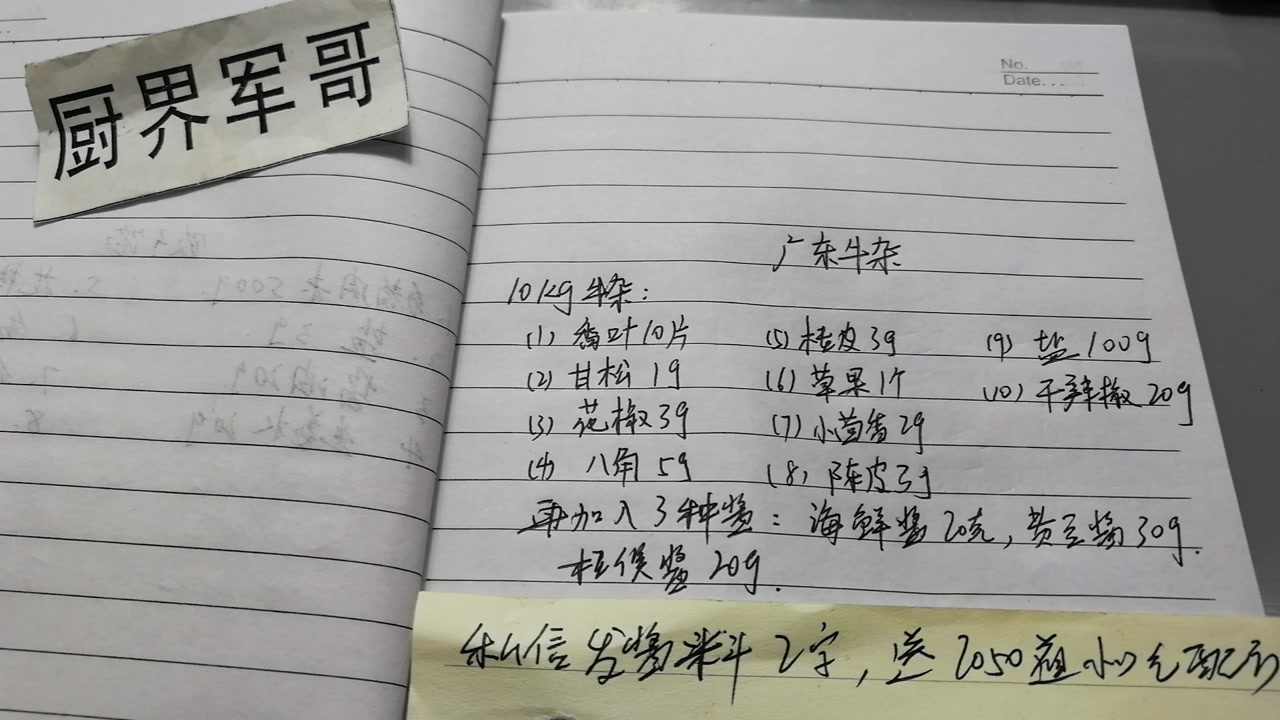 厨界军哥
No.
Date...
广东牛杂
10kg牛杂：
(1) 香叶10片 (5) 桂皮3g (9) 盐100g
(2) 甘松1g (6) 草果1个 (10) 干辣椒20g
(3) 花椒3g (7) 小茴香2g
(4) 八角5g (8) 陈皮3g
再加入3种酱：海鲜酱20克，黄豆酱30g.
柱侯酱20g.
私信发酱料2字，送2050道小吃配方